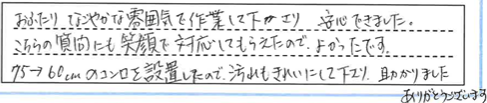 おふたり なごやかな雰囲気で作業して下さり 安心できました。
こちらの質問にも笑顔で対応してもらえたので、よかったです。
75→60cmのコンロを設置したので、汚れもきれいにして下さり 助かりました
ありがとうございます